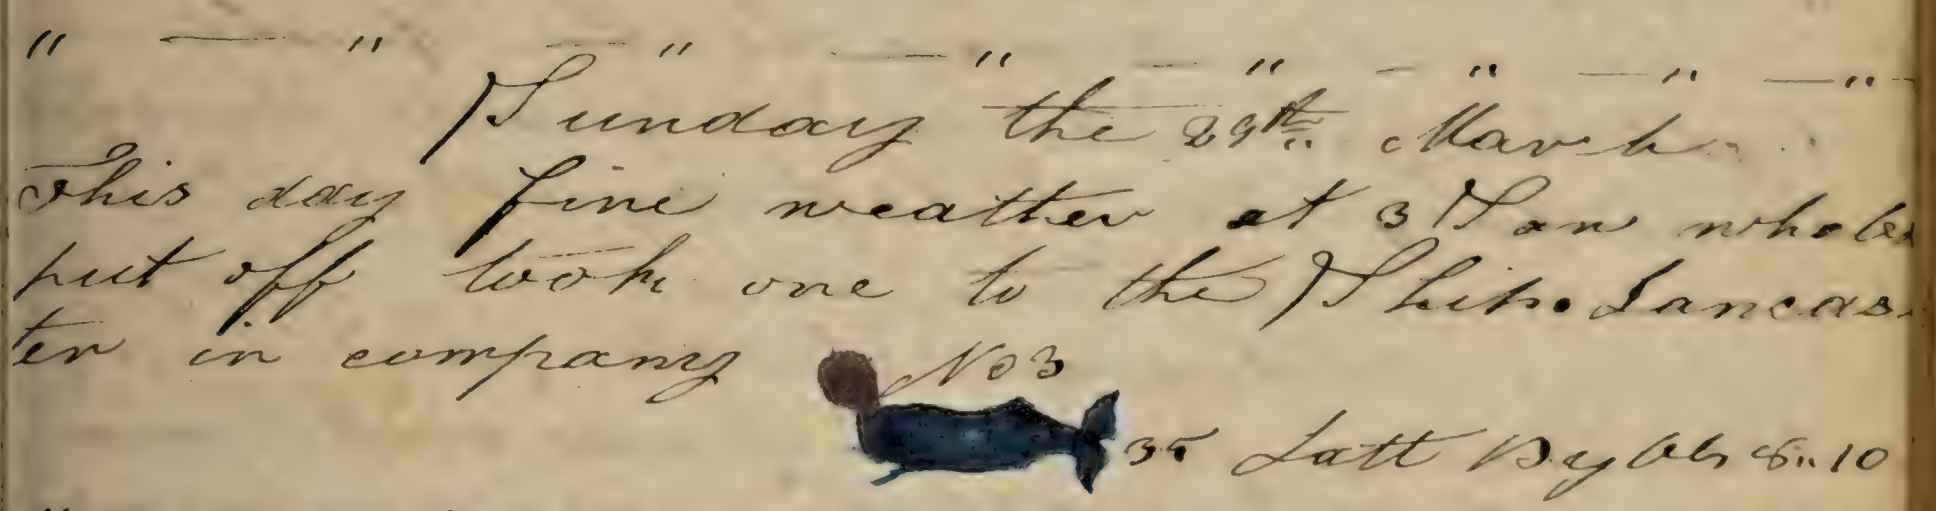 " — " — " — " — " — " — " — "
Sunday the 29th March
This day fine weather at 3 Saw whales
put off took one to the Ship. Lancas
ter in company No 3
35 Latt By Obs 8" 10